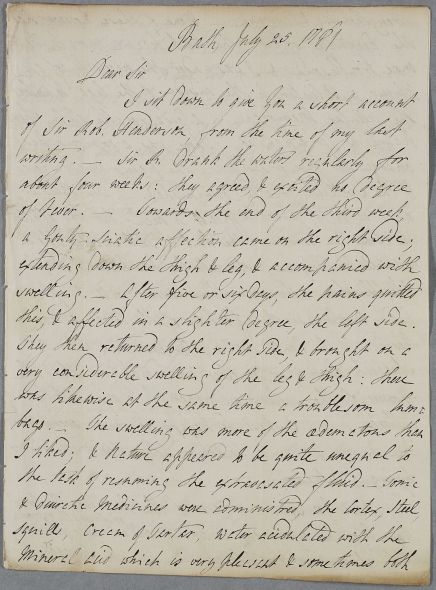 Bath July 25. 1781
Dear Sir
I sit down to give you a short account
of Sir Rob. Henderson, from the time of my last
writing. — Sir R. drank the waters regularly for
about four weeks: they agreed, & excited no degree
of fever. — Towards the end of the third week,
a gouty-sciatic affection came on the right side,
extending down the thigh & leg, & accompanied with
swelling. — After five or six days, the pains quitted
this, & affected in a slighter degree, the left side.
They then returned to the right side, & brought on a
very considerable swelling of the leg & thigh: there
was likewise at the same time a troublesom lum=
bago. — The swelling was more of the œdematous than
I liked; & Nature appeared to be quite unequal to
the task of resuming the extravasated fluid. — Tonic
& Diuretic Medicines were administered, the Cortex, Steel,
squills, Cream of Tartar, water acidulated with the
Mineral acid which is very pleasant & sometimes both